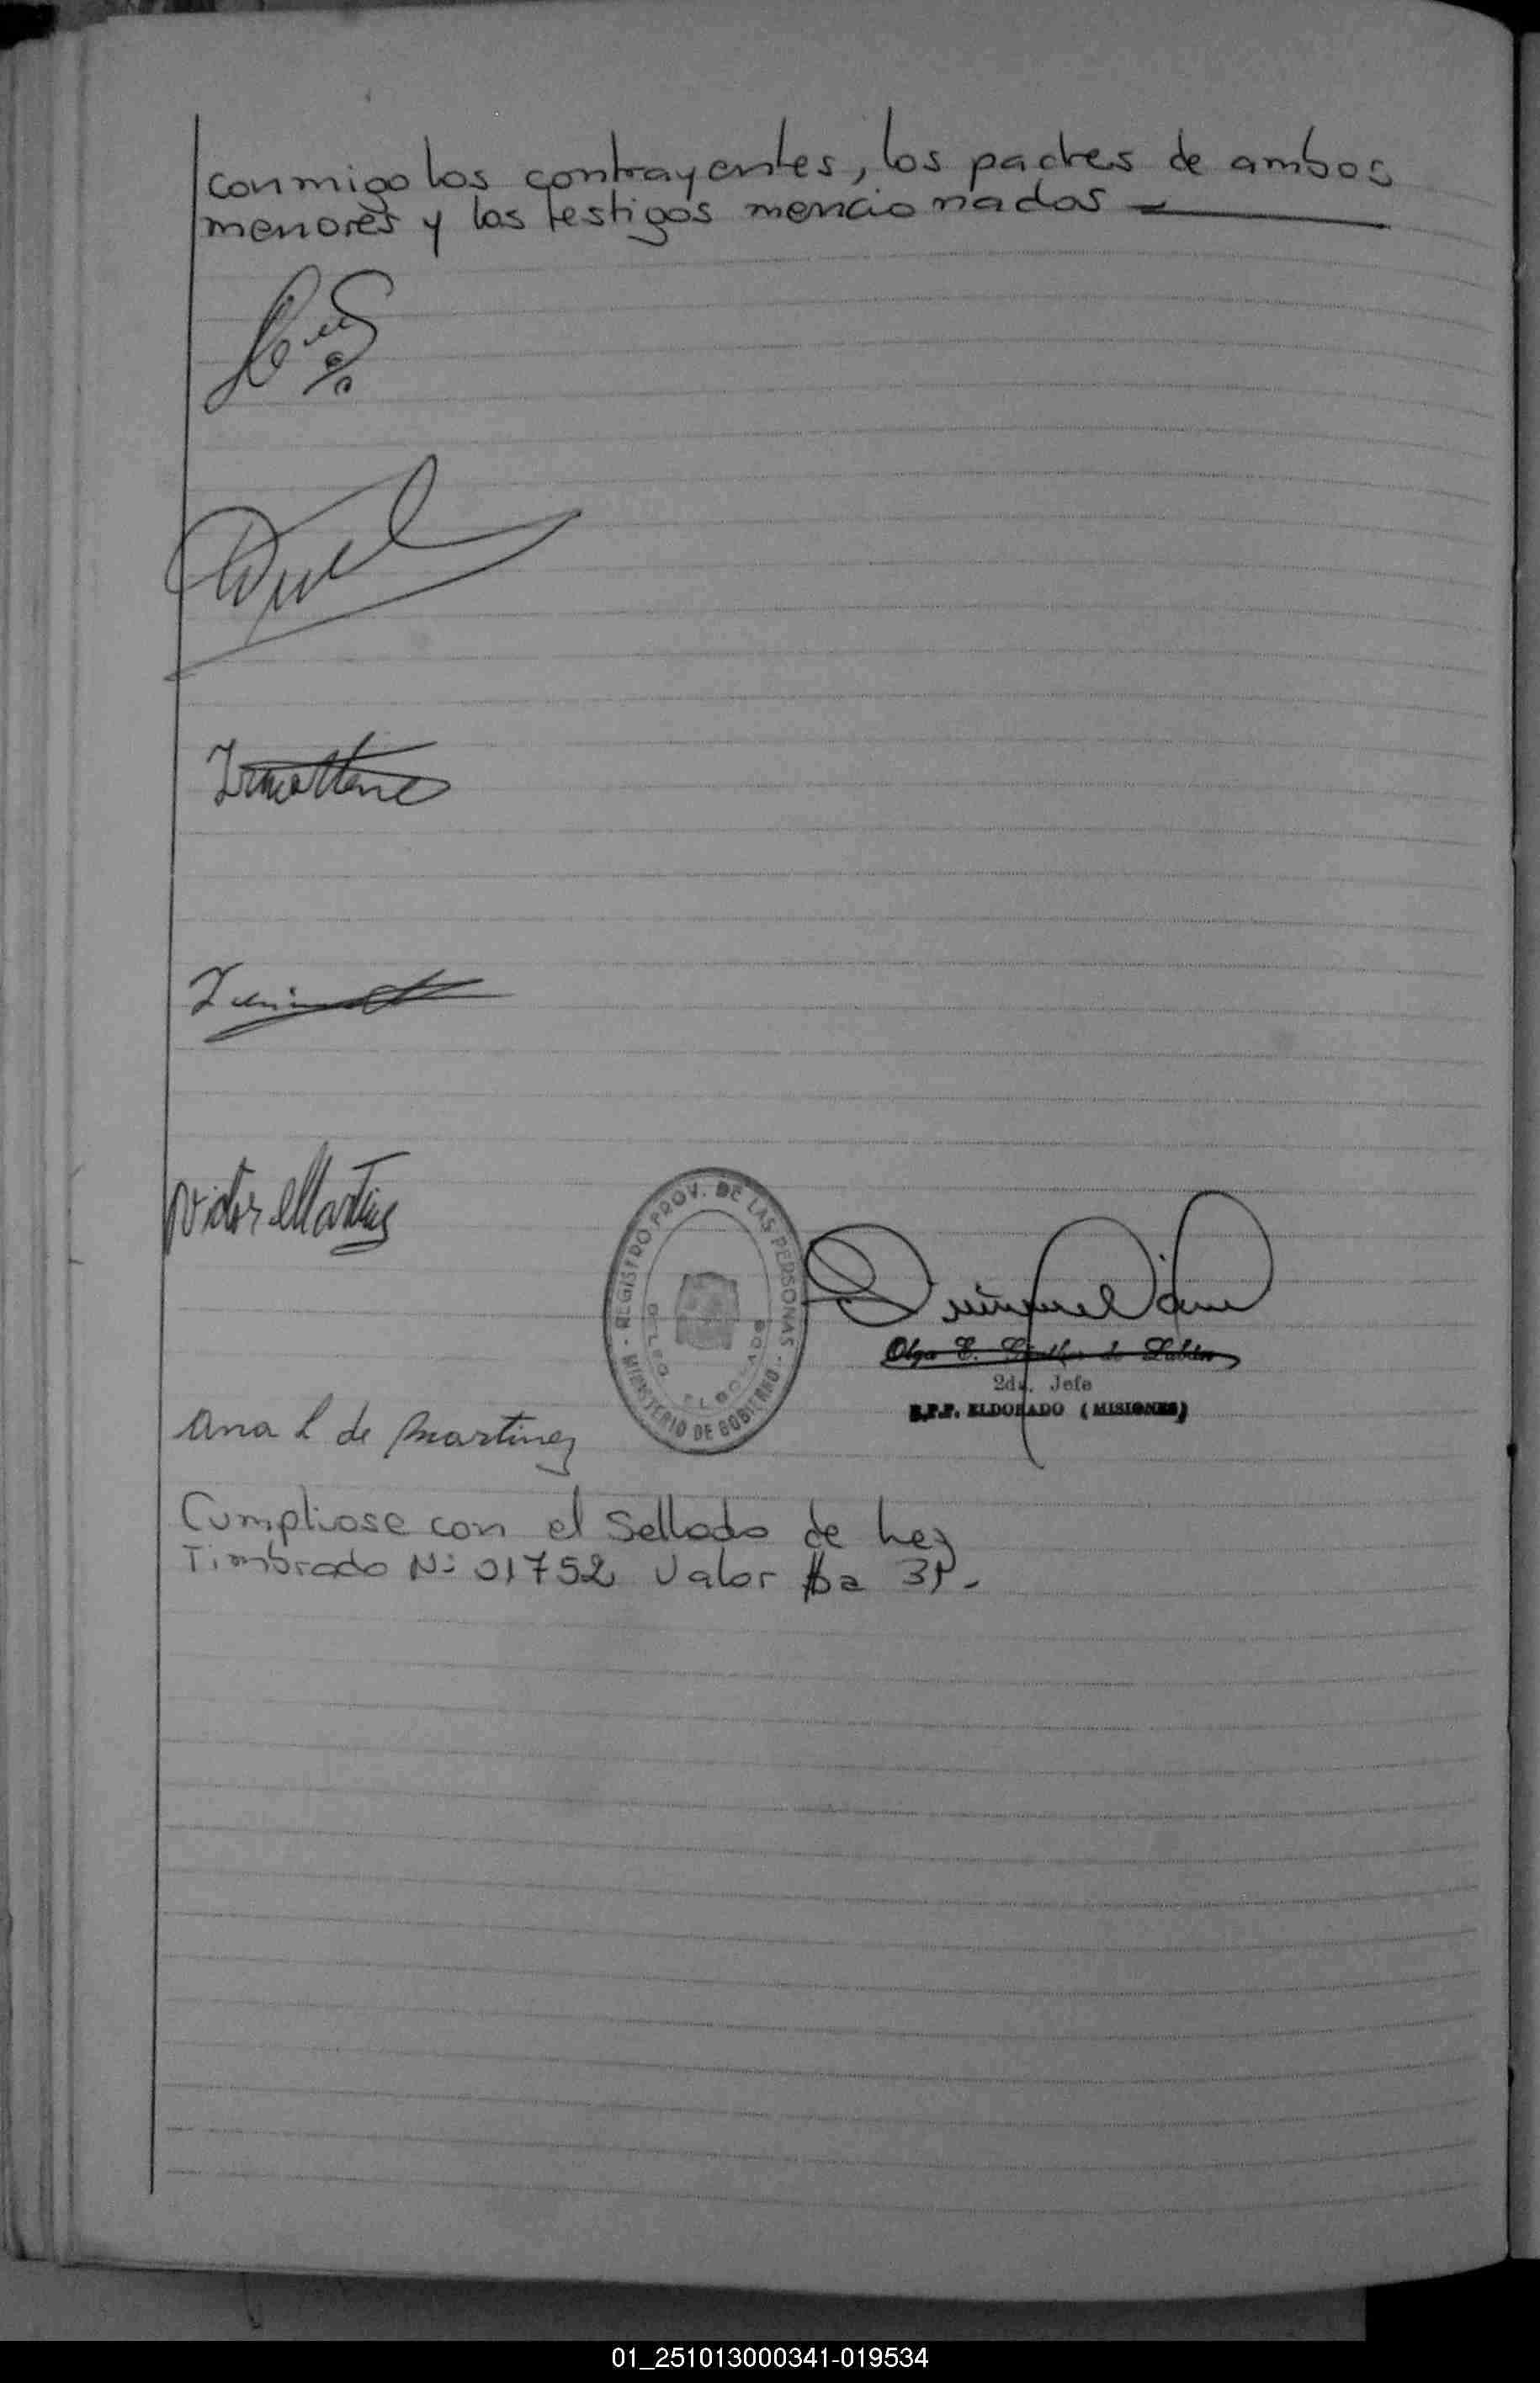 conmigo los contrayentes, los padres de ambos
menores y los testigos mencionados
Victor Martinez
REGISTRO PROV. DE LAS PERSONAS - MINISTERIO DE GOBIERNO -
DELEG. ELDORADO
Olga E. de
2da. Jefe
R.P.P. ELDORADO (MISIONES)
Ana L de Martinez
Cumpliose con el Sellado de Ley
Timbrado Nº 01752 Valor $a
01_251013000341-019534